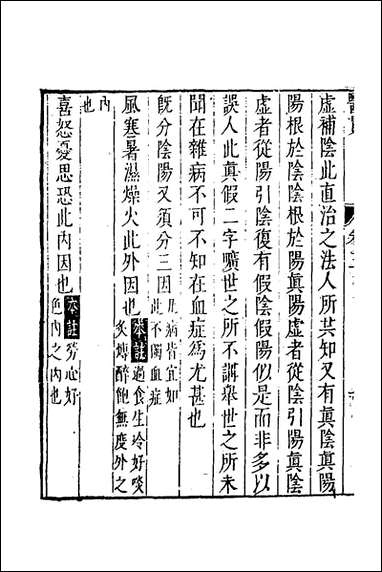 虛補陰此直治之法人所共知又有眞陰眞陽
陽根於陰陰根於陽眞陽虛者從陰引陽眞陰
虛者從陽引陰復有假陰假陽似是而非多以
誤人此眞假二字曠世之所不講舉世之所未
聞在雜病不可不知在血症爲尤甚也
旣分陰陽又須分三因凡病皆宜如
此不獨血症
風寒暑濕燥火此外因也本註過食生冷好啖
炙煿醉飽無度外之
内
也
喜怒憂思恐此内因也本註勞心好
色内之内也